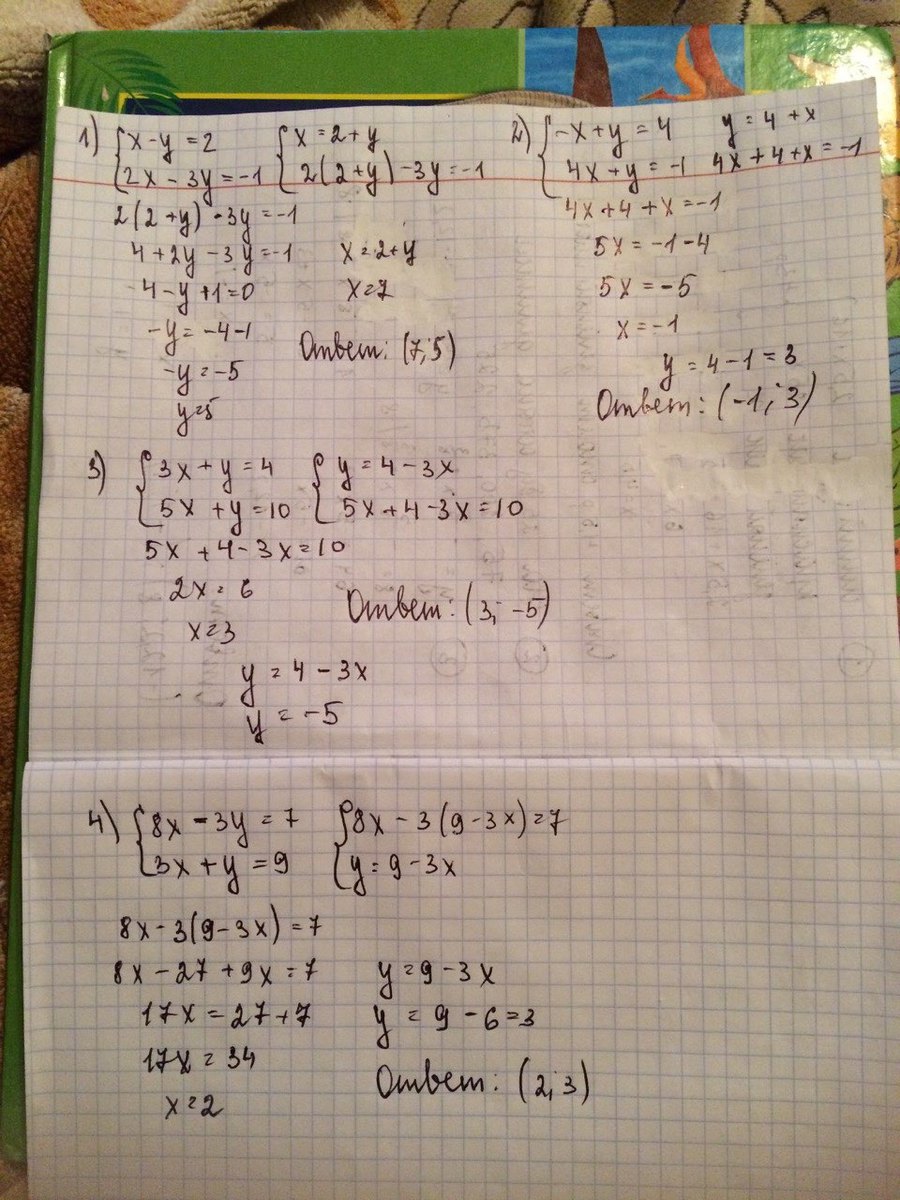 1) { x - y = 2
2x - 3y = -1
{ x = 2 + y
2(2+y) - 3y = -1
2(2+y) - 3y = -1
4 + 2y - 3y = -1
4 - y + 1 = 0
-y = -4 - 1
-y = -5
y = 5
x = 2 + y
x = 7
Ответ: (7; 5)
2) { -x + y = 4
4x + y = -1
y = 4 + x
4x + 4 + x = -1
4x + 4 + x = -1
5x = -1 - 4
5x = -5
x = -1
y = 4 - 1 = 3
Ответ: (-1; 3)
3) { 3x + y = 4
5x + y = 10
{ y = 4 - 3x
5x + 4 - 3x = 10
5x + 4 - 3x = 10
2x = 6
x = 3
y = 4 - 3x
y = -5
Ответ: (3; -5)
4) { 8x - 3y = 7
3x + y = 9
{ 8x - 3(9 - 3x) = 7
y = 9 - 3x
8x - 3(9 - 3x) = 7
8x - 27 + 9x = 7
17x = 27 + 7
17x = 34
x = 2
y = 9 - 3x
y = 9 - 6 = 3
Ответ: (2; 3)